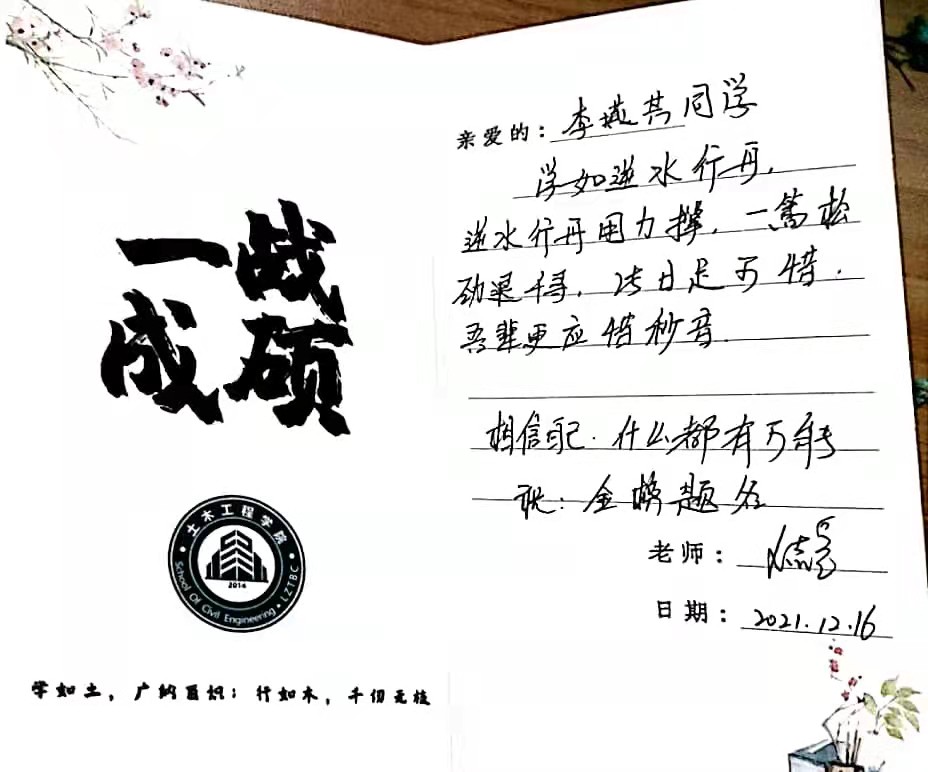 一战
成硕
土木工程学院
2014
School Of Civil Engineering · LZTBC
学如土，广纳百识；行如木，千仞无枝
亲爱的：李燕共同学
学如逆水行舟，
逆水行舟用力撑，一篙松
劲退千寻，古日足可惜，
吾辈更应惜秒音
相信自己.什么都有可能
祝：金榜题名
老师：
日期：2021.12.16